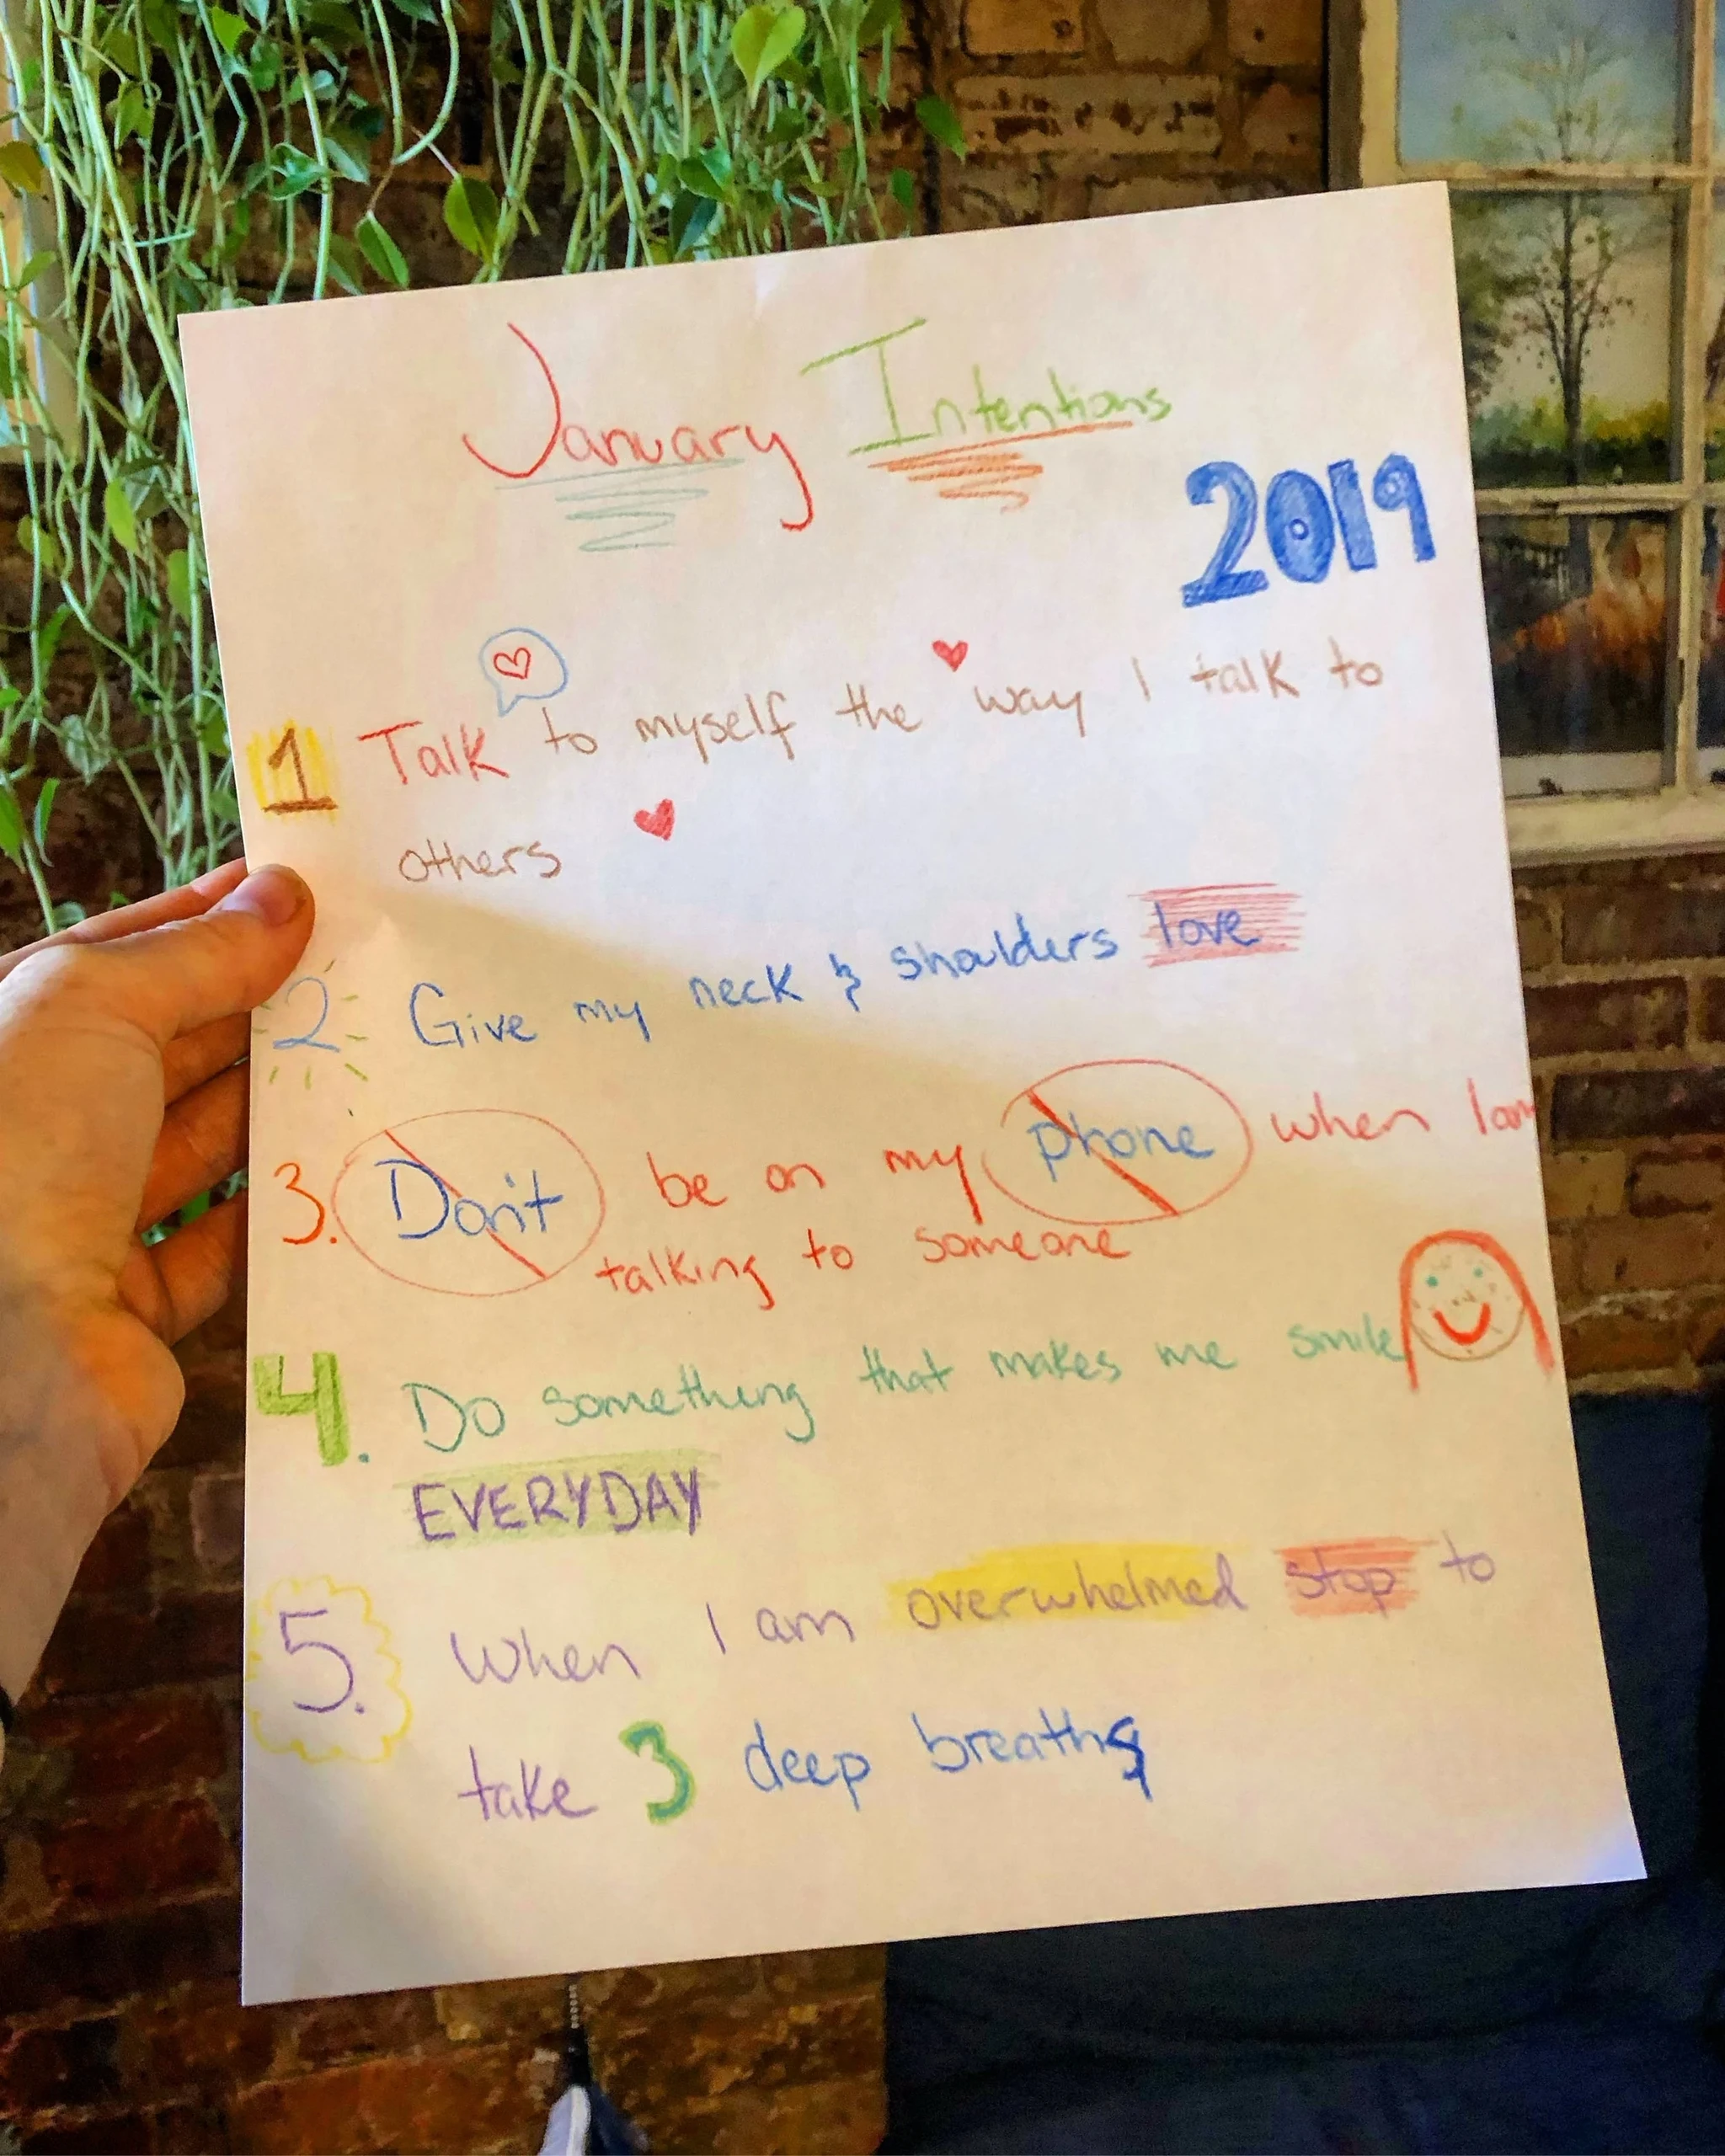 January Intentions
2019
1 Talk to myself the way I talk to
others
2 Give my neck & shoulders love
3. Don't be on my phone when I am
talking to someone
4. Do something that makes me smile
EVERYDAY
5. When I am overwhelmed stop to
take 3 deep breaths